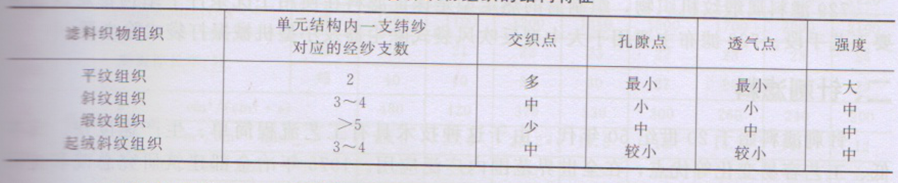 滤料织物组织 单元结构内一支纬纱对应的经纱支数 交织点 孔隙点 透气点 强度
平纹组织 2 多 最小 最小 大
斜纹组织 3~4 中 小 小 中
缎纹组织 >5 少 中 中 中
起绒斜纹组织 3~4 中 较小 较小 中